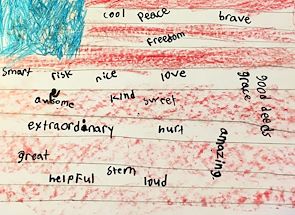 cool peace brave
freedom
smart risk nice love
awesome kind sweet
grace
good deeds
extraordinary hurt
amazing
great
helpful stern loud